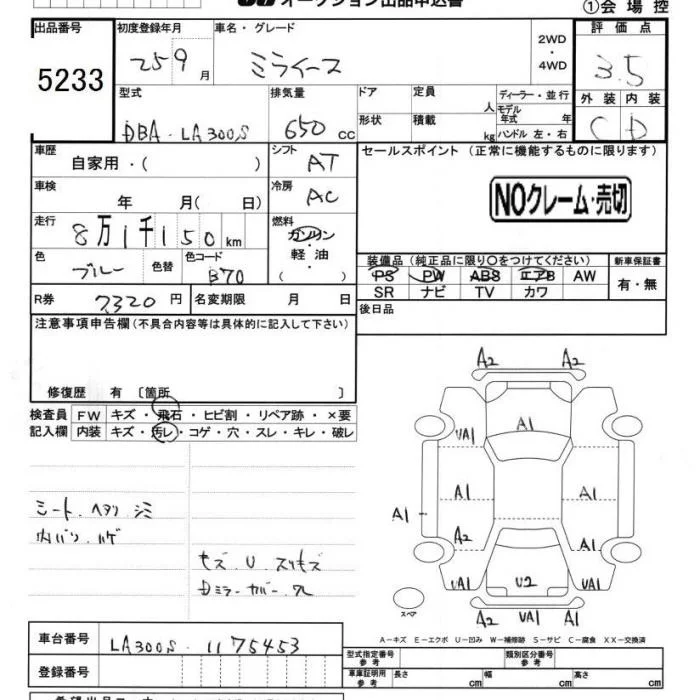 オークション出品申込書
①会場控
出品番号 初度登録年月 車名・グレード 評価点
5233 25 9月 ミライース 2WD・4WD 3.5
型式 排気量 ドア 定員 人 ディーラー・並行 外装 内装
DBA-LA300S 650cc 形状 積載 kg モデル年式 年 ハンドル 左・右 C D
車歴 自家用・( ) シフト AT セールスポイント (正常に機能するものに限ります)
車検 年 月( 日) 冷房 AC NOクレーム・売切
走行 8万1千150km 燃料 ガソリン・軽油・( )
色 ブルー 色替 色コード B70 装備品 (純正品に限り○をつけてください) 新車保証書
PS PW ABS エアB AW 有・無
SR ナビ TV カワ
R券 7,320円 名変期限 月 日 後日品
注意事項申告欄(不具合内容等は具体的に記入して下さい)
修復歴 有 〔箇所 〕
検査員 FW キズ・飛石・ヒビ割・リペア跡・×要
記入欄 内装 キズ・汚レ・コゲ・穴・スレ・キレ・破レ
シート.ヘタリ シミ
内バリ.ハゲ
キズ.U.スリキズ
Dミラーカバー.ワレ
A2 A2
A1
UA1 A1
A1 A1 A1
A2 A1
UA1 U2 UA1
A2 UA1 A2
スペア
A-キズ E-エクボ U-凹み W-補修跡 S-サビ C-腐食 XX-交換済
車台番号 LA300S-1175453 型式指定番号 参考 類別区分番号 参考
登録番号 車庫証明用 参考 長さ cm 幅 cm 高さ cm